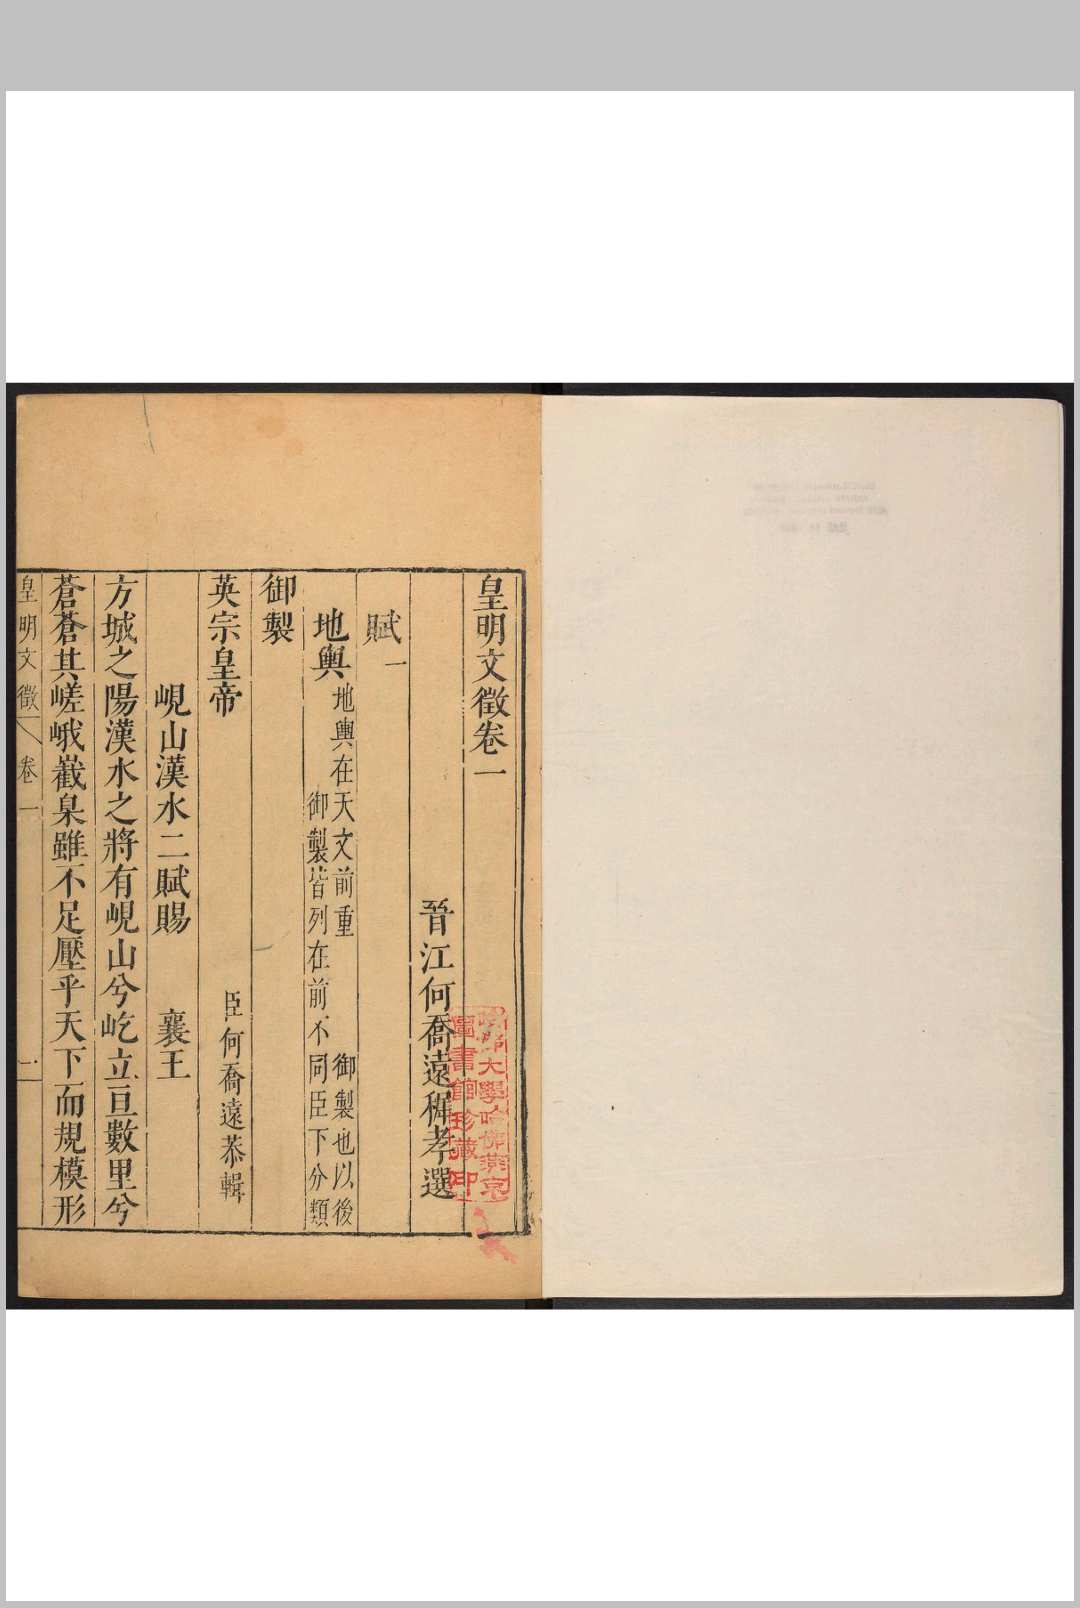 皇明文徵卷一
晉江何喬遠穉孝選
賦一
地輿
地輿在天文前重
御製也以後
御製皆列在前不同臣下分類
御製
英宗皇帝
臣何喬遠恭輯
峴山漢水二賦賜
襄王
方城之陽漢水之將有峴山兮屹立亘數里兮
蒼蒼其嵯峨巀嵲雖不足壓乎天下而規模形
皇明文徵
卷一
一
哈佛大學哈佛燕京
圖書館珍藏印